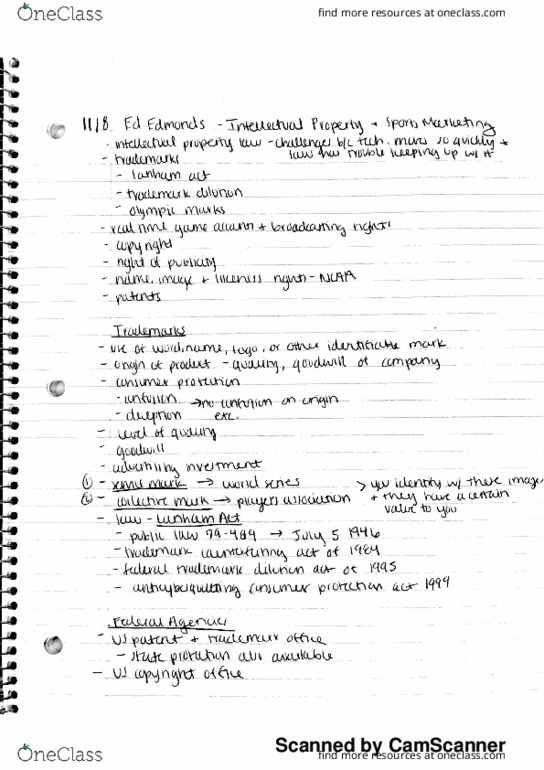 OneClass
find more resources at oneclass.com
11/8 Ed Edmonds - Intellectual Property + Sports Marketing
- intellectual property law - challenges b/c tech. moves so quickly +
law has trouble keeping up w/ it
- trademarks
- lanham act
- trademark dilution
- olympic marks
- real time game accounts + broadcasting rights
- copyright
- right of publicity
- name, image + likeness rights - NCAA
- patents
Trademarks
- use of word, name, logo, or other identifiable mark
- origin of product - quality, goodwill of company
- consumer protection
- confusion → no confusion on origin
- deception etc.
- level of quality
- goodwill
- advertising investment
① - mark → world series
② - collective mark → players association
> you identify w/ these images
+ they have a certain
value to you
- law - Lanham Act
- public law 79-489 → July 5 1946
- trademark act of 1984
- federal trademark dilution act of 1995
- anticybersquatting consumer protection act 1999
Federal Agencies
- US patent + trademark office
- state protection also available
- US copyright office
Scanned by CamScanner
OneClass
find more resources at oneclass.com